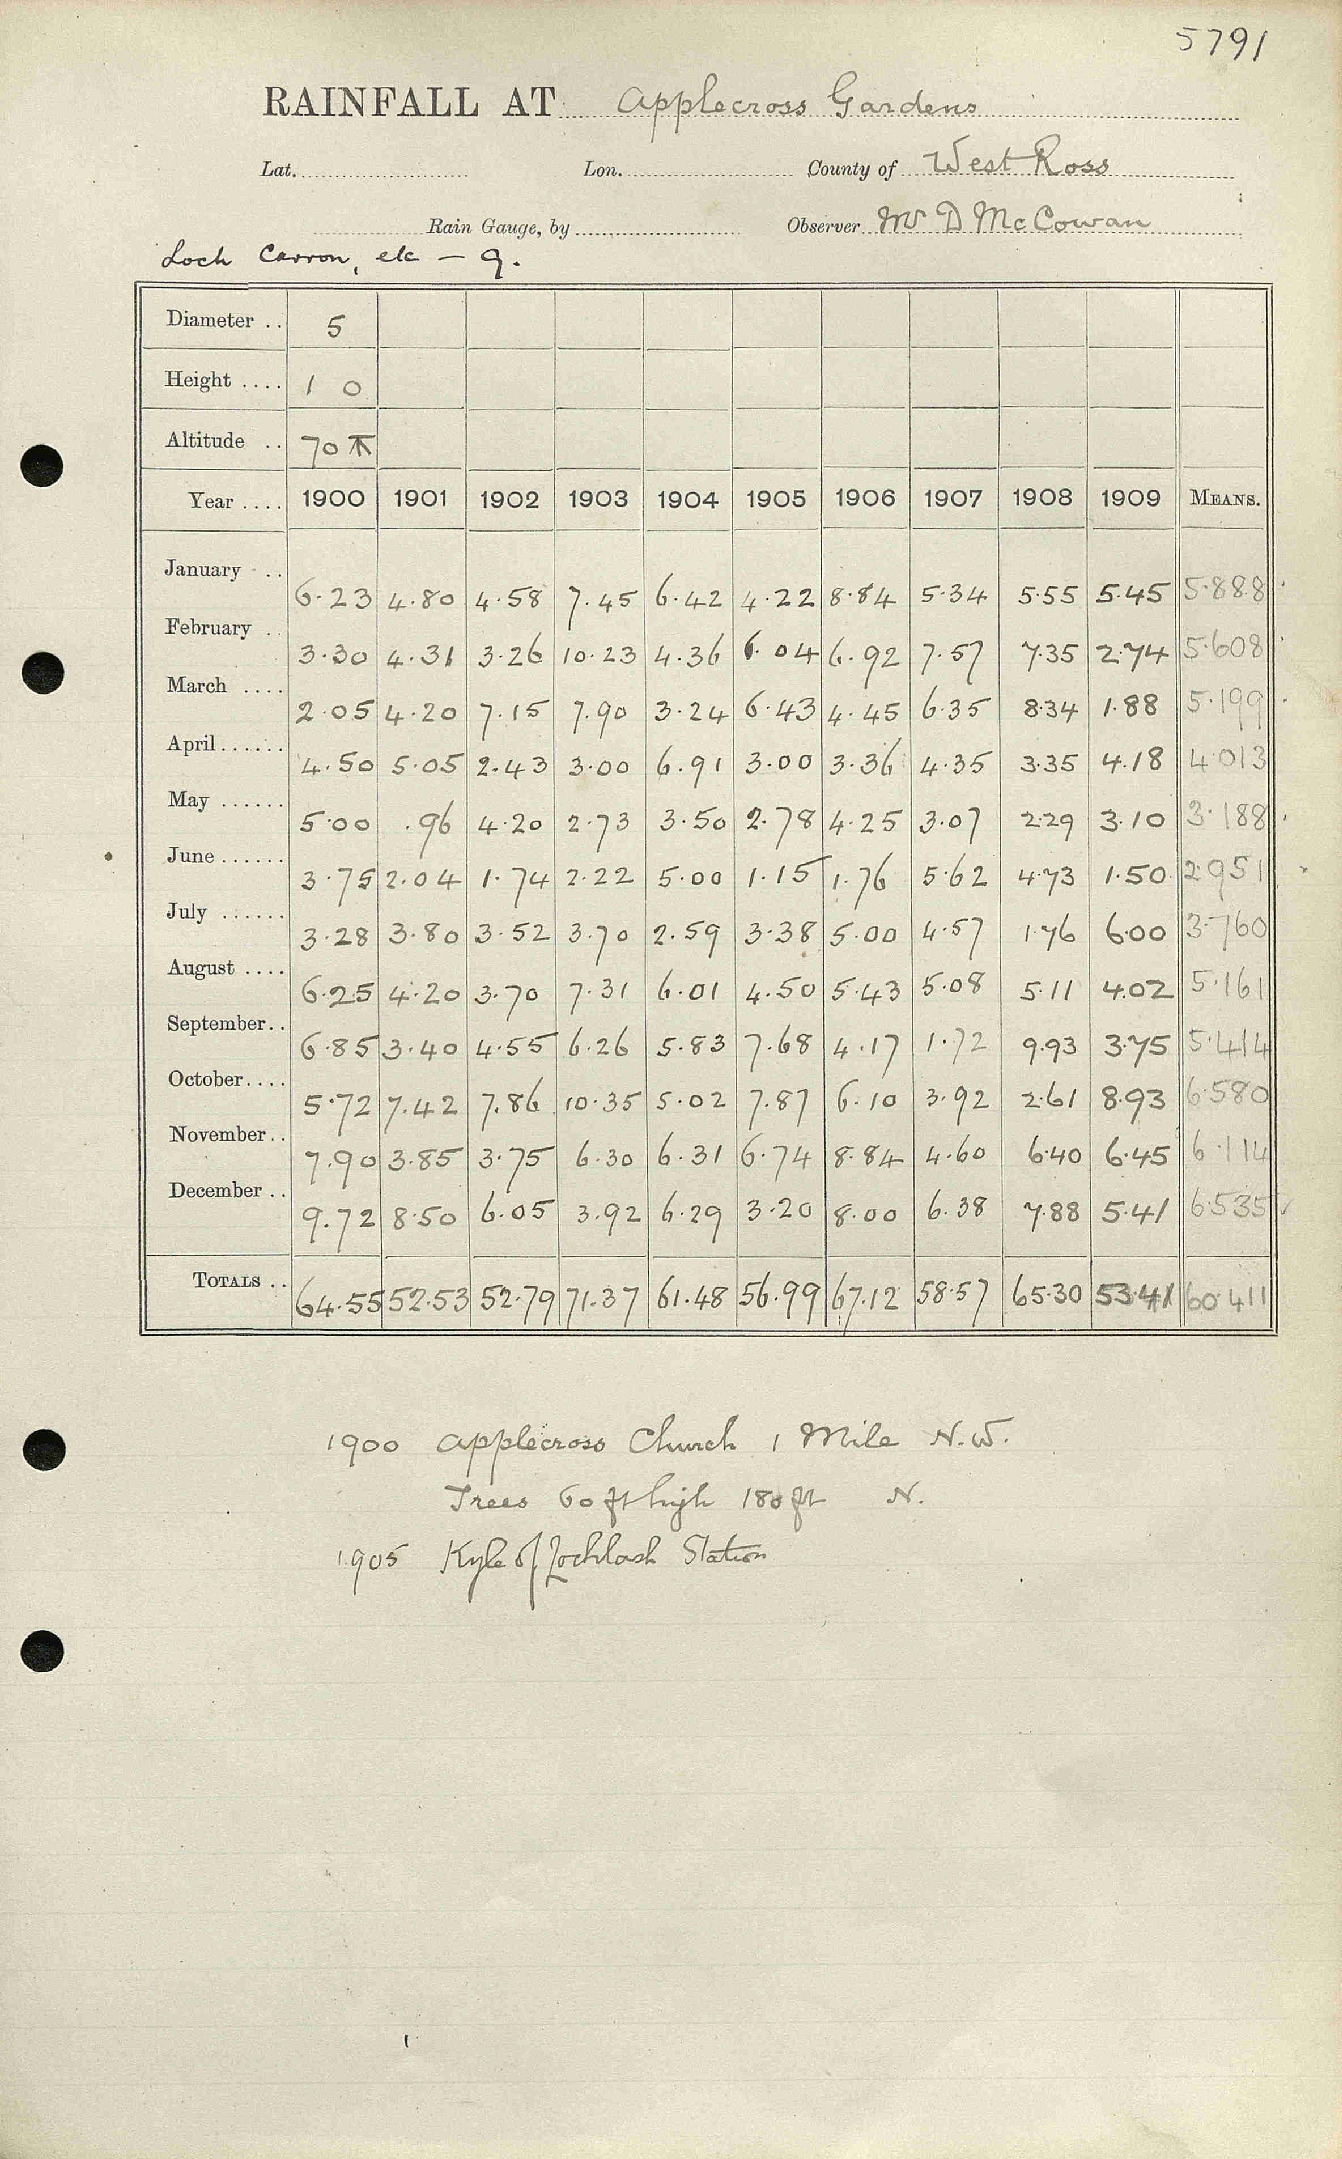 5791
RAINFALL AT Applecross Gardens
Lat. Lon. County of West Ross
Rain Gauge, by Observer Mr D McCowan
Loch Carron, etc — 9.
Diameter .. 5
Height .... 1 0
Altitude .. 70 ft
Year .... 1900 1901 1902 1903 1904 1905 1906 1907 1908 1909 MEANS.
January .. 6.23 4.80 4.58 7.45 6.42 4.22 8.84 5.34 5.55 5.45 5.888
February .. 3.30 4.31 3.26 10.23 4.36 6.04 6.92 7.57 7.35 2.74 5.608
March .... 2.05 4.20 7.15 7.90 3.24 6.43 4.45 6.35 8.34 1.88 5.199
April ...... 4.50 5.05 2.43 3.00 6.91 3.00 3.36 4.35 3.35 4.18 4.013
May ...... 5.00 .96 4.20 2.73 3.50 2.78 4.25 3.07 2.29 3.10 3.188
June ...... 3.75 2.04 1.74 2.22 5.00 1.15 1.76 5.62 4.73 1.50 2.951
July ...... 3.28 3.80 3.52 3.70 2.59 3.38 5.00 4.57 1.76 6.00 3.760
August .... 6.25 4.20 3.70 7.31 6.01 4.50 5.43 5.08 5.11 4.02 5.161
September.. 6.85 3.40 4.55 6.26 5.83 7.68 4.17 1.72 9.93 3.75 5.414
October.... 5.72 7.42 7.86 10.35 5.02 7.87 6.10 3.92 2.61 8.93 6.580
November.. 7.90 3.85 3.75 6.30 6.31 6.74 8.84 4.60 6.40 6.45 6.114
December .. 9.72 8.50 6.05 3.92 6.29 3.20 8.00 6.38 7.88 5.41 6.535
TOTALS .. 64.55 52.53 52.79 71.37 61.48 56.99 67.12 58.57 65.30 53.41 60.411
1900 Applecross Church 1 Mile N.W.
Trees 60 ft high 180 ft N.
1905 Kyle of Lochlash Station